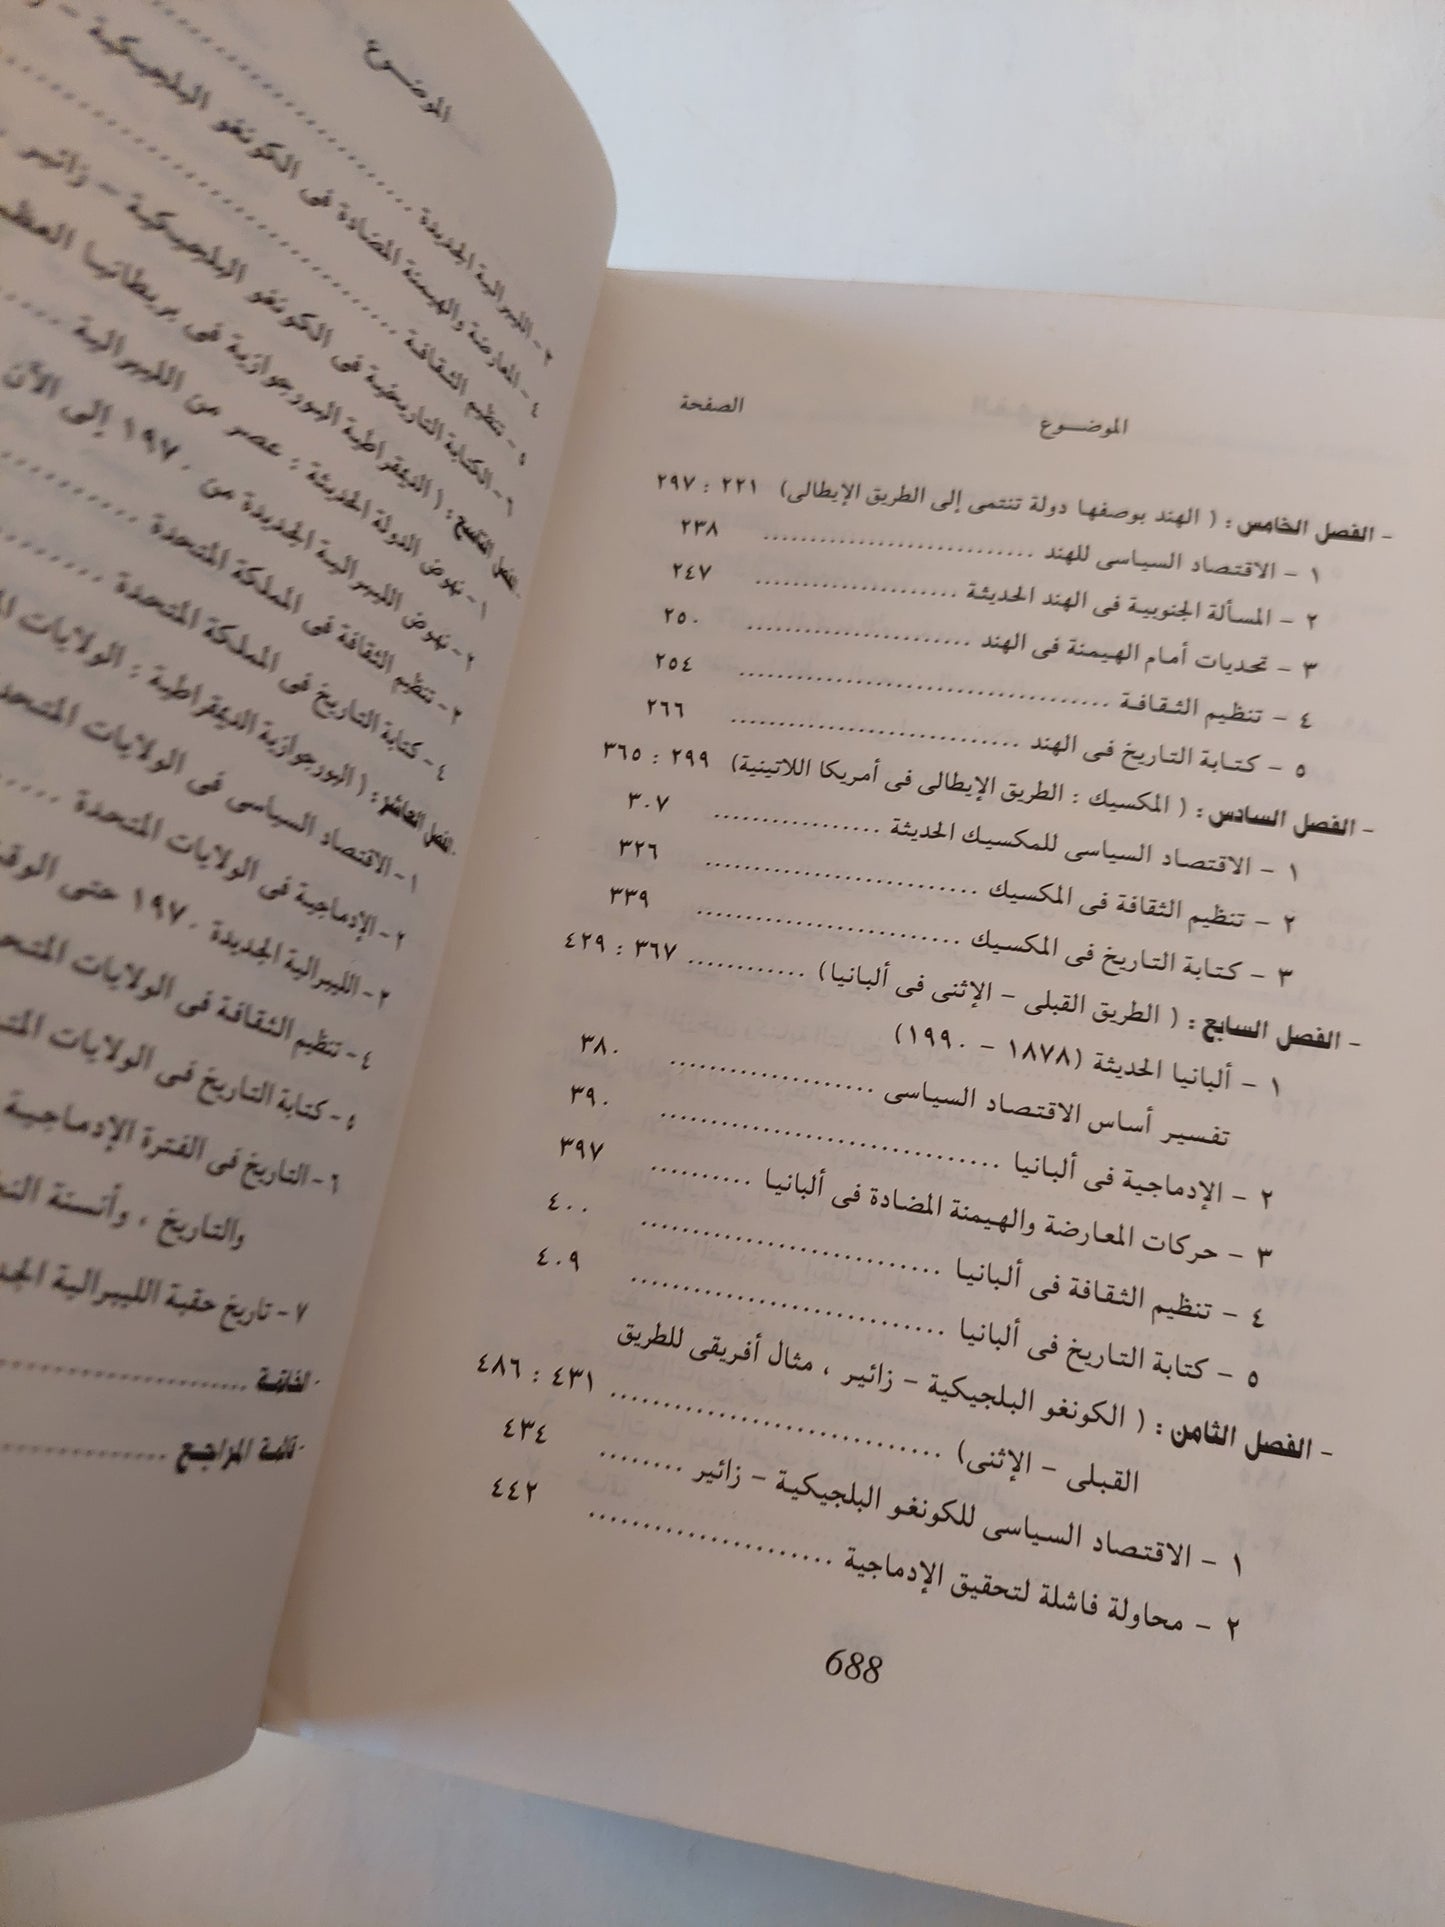 الموضــوع
الصفحة
- الفصل الخامس : ( الهند بوصفها دولة تنتمى إلى الطريق الإيطالى) ٢٢١ : ٢٩٧
١ - الاقتصاد السياسى للهند ............................ ٢٣٨
٢ - المسألة الجنوبية فى الهند الحديثة ..................... ٢٤٧
٣ - تحديات أمام الهيمنة فى الهند ....................... ٢٥٠
٤ - تنظيم الثقافة ..................................... ٢٥٤
٥ - كتابة التاريخ فى الهند ............................ ٢٦٦
- الفصل السادس : ( المكسيك : الطريق الإيطالى فى أمريكا اللاتينية) ٢٩٩ : ٣٦٥
١ - الاقتصاد السياسى للمكسيك الحديثة ................. ٣٠٧
٢ - تنظيم الثقافة فى المكسيك ........................... ٣٢٦
٣ - كتابة التاريخ فى المكسيك .......................... ٣٣٩
- الفصل السابع : ( الطريق القبلى - الإثنى فى ألبانيا) ............ ٣٦٧ : ٤٢٩
١ - ألبانيا الحديثة (١٨٧٨ - ١٩٩٠)
تفسير أساس الاقتصاد السياسى ..................... ٣٨٠
٢ - الإدماجية فى ألبانيا ................................ ٣٩٠
٣ - حركات المعارضة والهيمنة المضادة فى ألبانيا .......... ٣٩٧
٤ - تنظيم الثقافة فى ألبانيا ............................. ٤٠٠
٥ - كتابة التاريخ فى ألبانيا .............................. ٤٠٩
- الفصل الثامن : ( الكونغو البلجيكية - زائير ، مثال أفريقى للطريق
القبلى - الإثنى) ................................ ٤٣١ : ٤٨٦
١ - الاقتصاد السياسى للكونغو البلجيكية - زائير ........ ٤٣٤
٢ - محاولة فاشلة لتحقيق الإدماجية ...................... ٤٤٢
688
الموضــوع
٣ - الليبرالية الجديدة ........................
٤ - المعارضة والهيمنة المضادة فى الكونغو البلجيكية -
٥ - تنظيم الثقافة ..............................
٦ - الكتابة التاريخية فى الكونغو البلجيكية - زائير
- الفصل التاسع : ( الديمقراطية البورجوازية فى بريطانيا
١ - نهوض الدولة الحديثة : عصر من الليبرالية .....
٢ - نهوض الليبرالية الجديدة من ١٩٧٠ إلى الآن
٣ - تنظيم الثقافة فى المملكة المتحدة ..........
٤ - كتابة التاريخ فى المملكة المتحدة ..........
- الفصل العاشر : ( البورجوازية الديمقراطية : الولايات
١ - الاقتصاد السياسى فى الولايات
٢ - الإدماجية فى الولايات المتحدة ......
٣ - الليبرالية الجديدة ١٩٧٠ حتى
٤ - تنظيم الثقافة فى الولايات
٥ - كتابة التاريخ فى الولايات
٦ - التاريخ فى الفترة الإدماجية
والتاريخ ، وأنسنة
٧ - تاريخ حقبة الليبرالية
- الخاتمة ......................
- قائمة المراجع ................